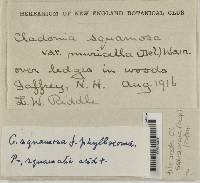 HERBARIUM OF NEW ENGLAND BOTANICAL CLUB
Cladonia squamosa
var. muricella (Del.) Wain
over ledges in woods
Jaffrey, N.H. Aug. 1916
L. W. Riddle
C. squamosa f. phyllocoma
P-, squamatic acid +